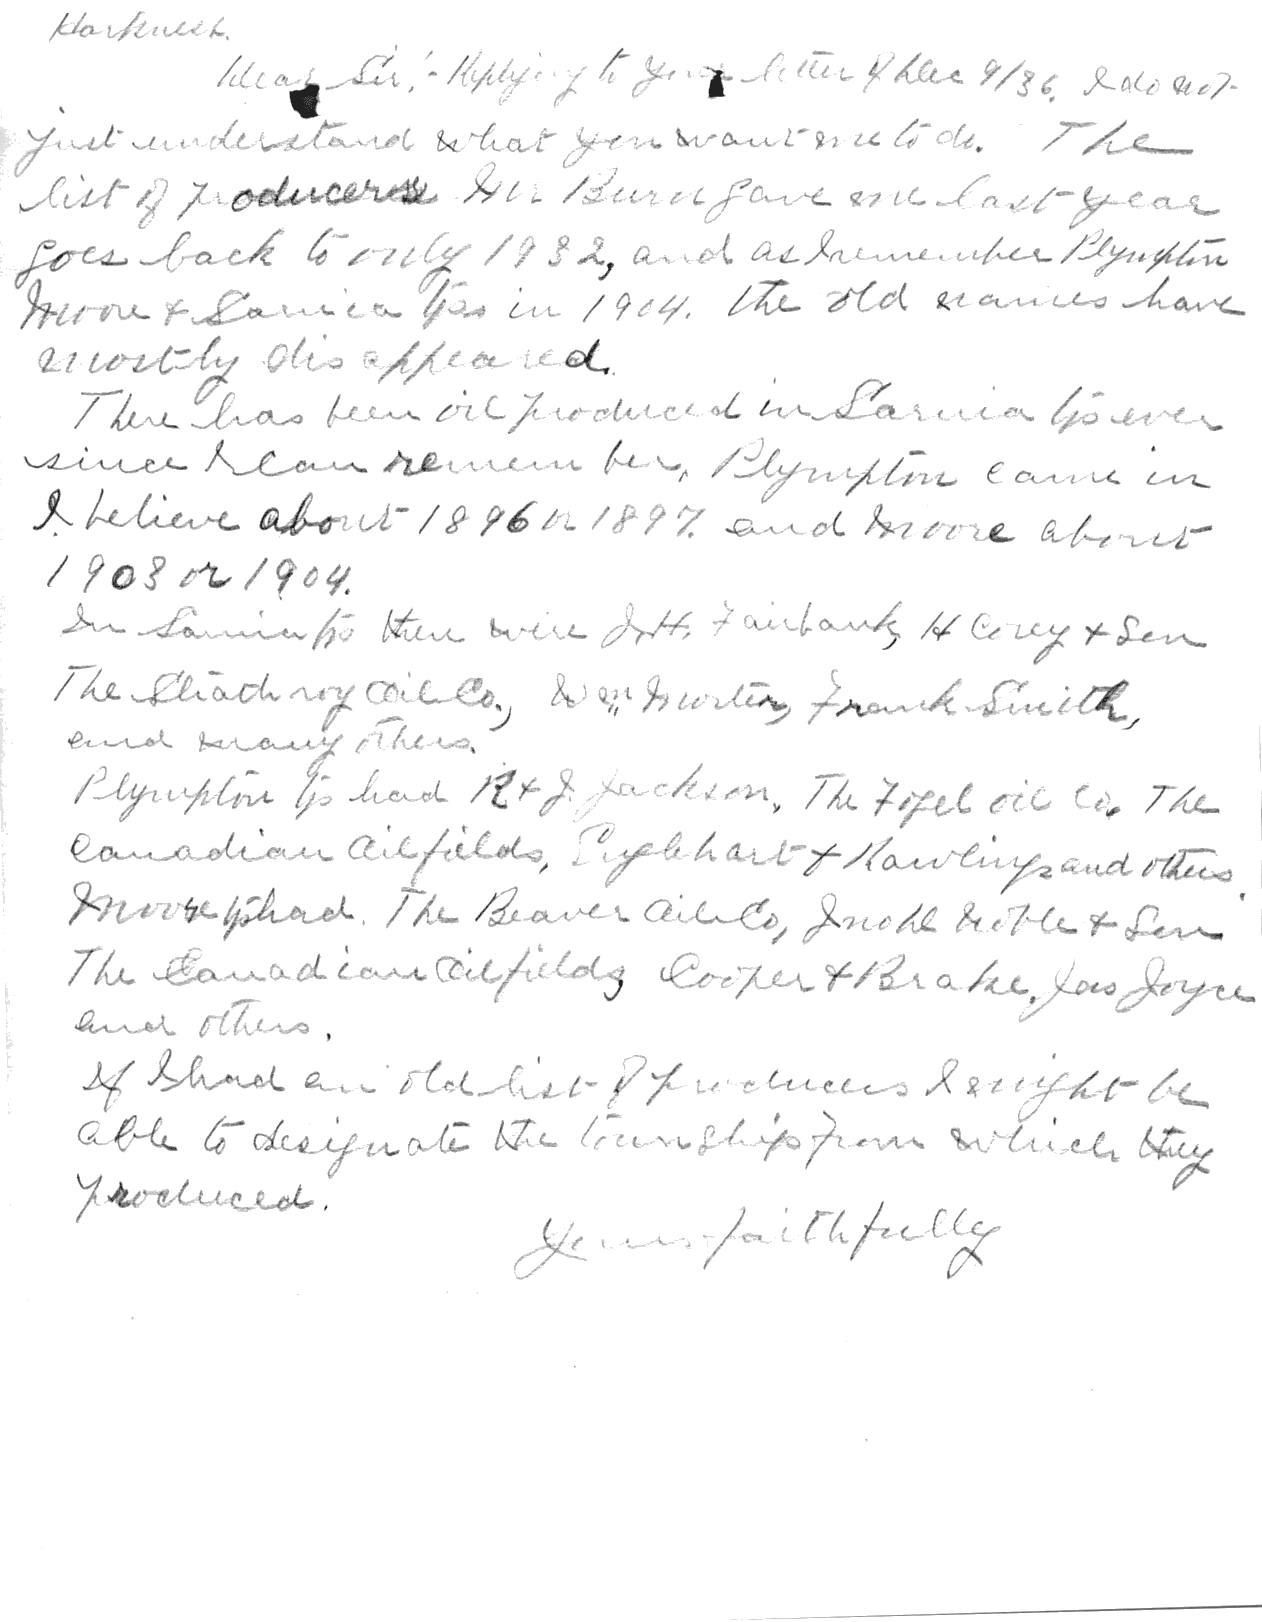 Harkness.
Dear Sir:- Replying to your letter of Dec 9/36. I do not
just understand what you want me to do. The
list of producers Mr Burn gave me last year
goes back to only 1932, and as I remember Plympton
Moore & Sarnia tps in 1904. the old names have
mostly disappeared.
There has been oil produced in Sarnia tps ever
since I can remember, Plympton came in
I believe about 1896 or 1897. and Moore about
1903 or 1904.
In Sarnia tp there were J.H. Fairbank, H Corey & Son
The Strathroy Oil Co., Wm Frank Smith,
and many others.
Plympton tp had R & J. Jackson, The Fogel oil Co, The
Canadian Oilfields, Englehart & Rawlings and others.
Moore tp had. The Beaver Oil Co, Noble & Son
The Canadian Oilfields, Cooper & Brake, Jas Joyce
and others.
If I had an old list of producers I might be
able to designate the township from which they
produced.
Yours faithfully